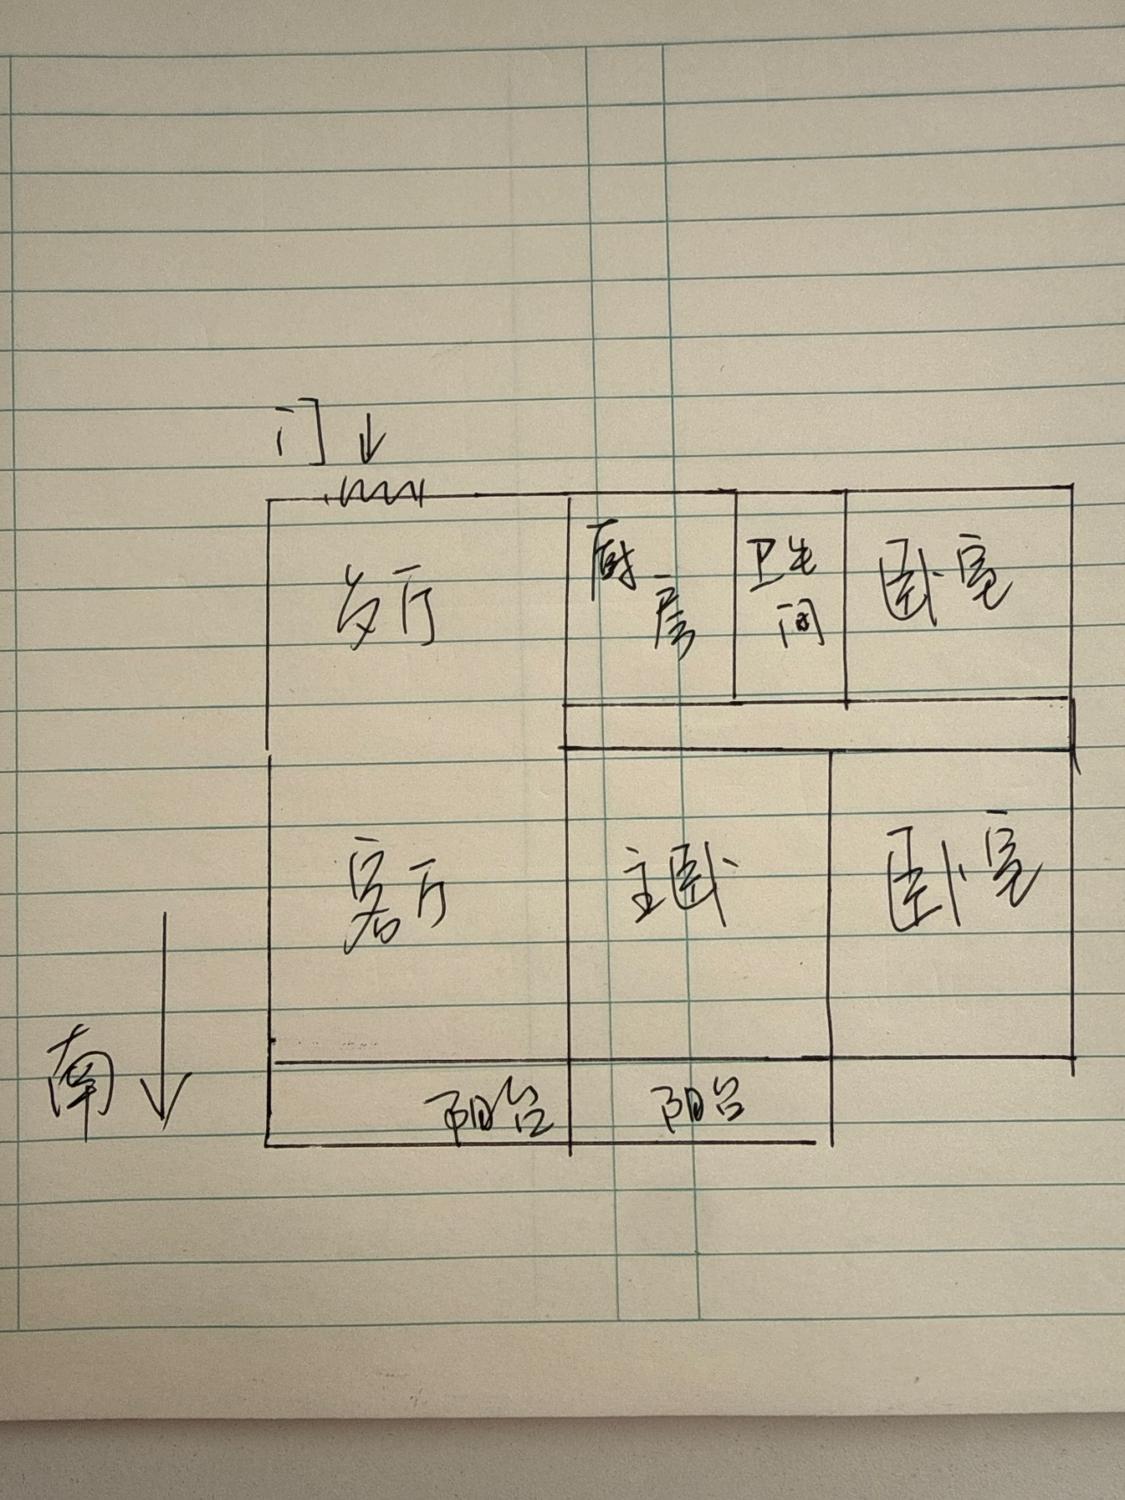 门
厨
房
卫生
间
卧室
客厅
主卧
卧室
南
阳台
阳台